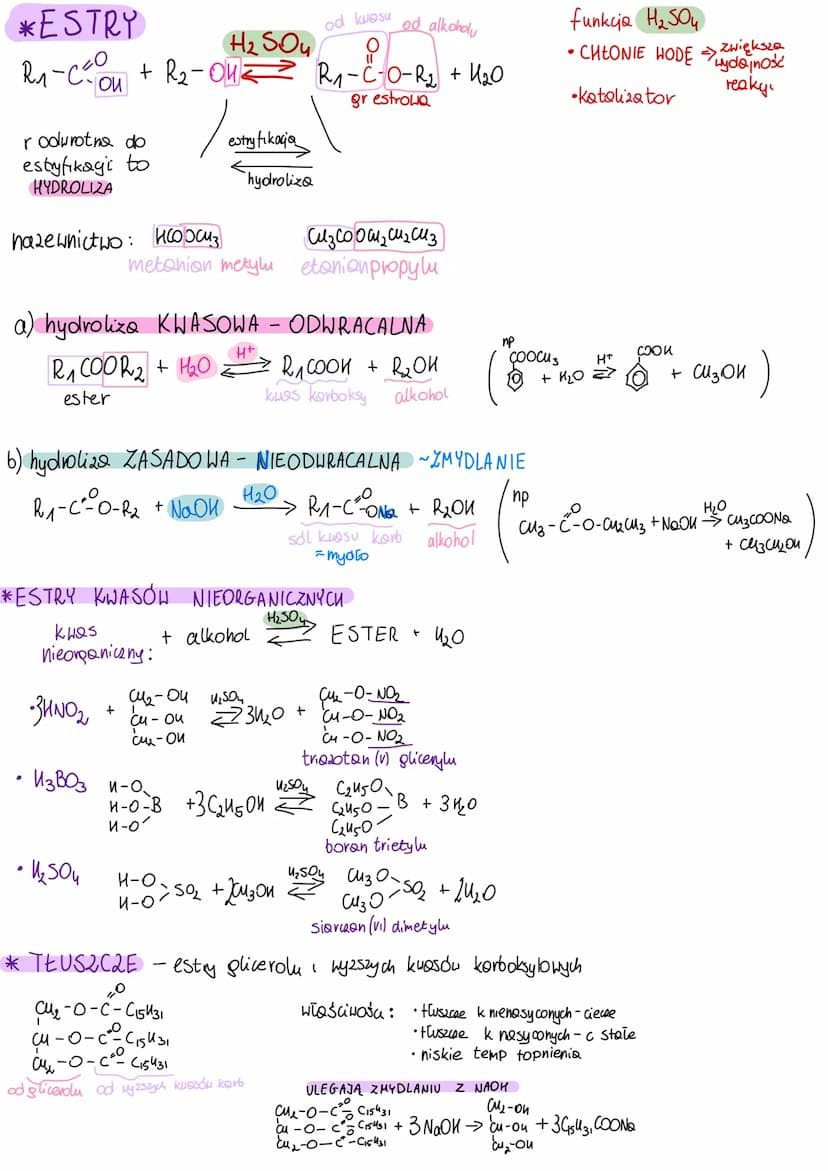 *ESTRY
od kwasu od alkoholu
funkcja H₂SO₄
• CHŁONIE WODĘ ⇒ zwiększa wydajność reakcji
• katalizator
R₁-C=O OH + R₂-OH ⇌ (H₂SO₄) R₁-C(=O)-O-R₂ + H₂O
gr estrowa
r odwrotna do
estryfikacji to
HYDROLIZA
estryfikacja
hydroliza
nazewnictwo: HCOOCH₃ CH₃COOCH₂CH₂CH₃
metanian metylu etanian propylu
a) hydroliza KWASOWA - ODWRACALNA
R₁COOR₂ + H₂O ⇌ (H⁺) R₁COOH + R₂OH
ester kwas karboksy alkohol
(np COOCH₃ + H₂O ⇌ (H⁺) COOH + CH₃OH)
b) hydroliza ZASADOWA - NIEODWRACALNA ~ZMYDLANIE
R₁-C=O-O-R₂ + NaOH → (H₂O) R₁-C=O-ONa + R₂OH
sól kwasu karb alkohol
= mydło
(np CH₃-C=O-O-CH₂CH₃ + NaOH → (H₂O) CH₃COONa
+ CH₃CH₂OH)
*ESTRY KWASÓW NIEORGANICZNYCH
kwas nieorganiczny: + alkohol ⇌ (H₂SO₄) ESTER + H₂O
• 3HNO₂ + CH₂-OH CH-OH CH₂-OH ⇌ (H₂SO₄) 3H₂O + CH₂-O-NO₂ CH-O-NO₂ CH-O-NO₂
triazotan (V) glicerylu
• H₃BO₃ H-O H-O-B H-O + 3C₂H₅OH ⇌ (H₂SO₄) C₂H₅O C₂H₅O-B C₂H₅O + 3H₂O
boran trietylu
• H₂SO₄ H-O H-O SO₂ + 2CH₃OH ⇌ (H₂SO₄) CH₃O CH₃O SO₂ + 2H₂O
siarczan (VI) dimetylu
* TŁUSZCZE - estry glicerolu i wyższych kwasów karboksylowych
CH₂-O-C=O-C₁₅H₃₁
CH-O-C=O-C₁₅H₃₁
CH₂-O-C=O-C₁₅H₃₁
od glicerolu od wyższych kwasów karb
właściwości: • tłuszcze k nienasyconych - ciecze
• tłuszcze k nasyconych - c stałe
• niskie temp topnienia
ULEGAJĄ ZMYDLANIU Z NAOH
CH₂-O-C=O-C₁₅H₃₁ CH₂-OH
CH-O-C=O-C₁₅H₃₁ + 3NaOH → CH-OH + 3C₁₅H₃₁COONa
CH₂-O-C=O-C₁₅H₃₁ CH₂-OH